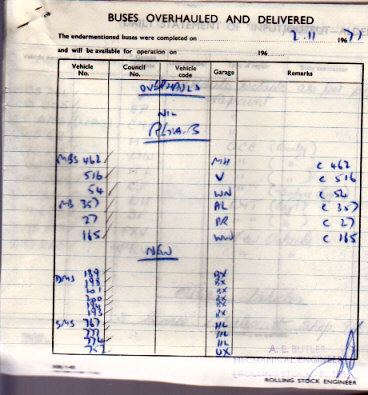 BUSES OVERHAULED AND DELIVERED
The undermentioned buses were completed on 2.11 1971
and will be available for operation on 196
Vehicle No. Council No. Vehicle code Garage Remarks
OVERHAULS
NIL
MBS 462 MH C 462
516 V C 516
54 WN C 54
MB 357 AL C 357
27 PR C 27
165 WW C 165
NEW
DMS 189 BX
193 BX
201 BX
200 BX
194 BX
195 BX
SMS 767 HL
777 HL
774 HL
757 UX
A. E. BUTLER
ROLLING STOCK ENGINEER